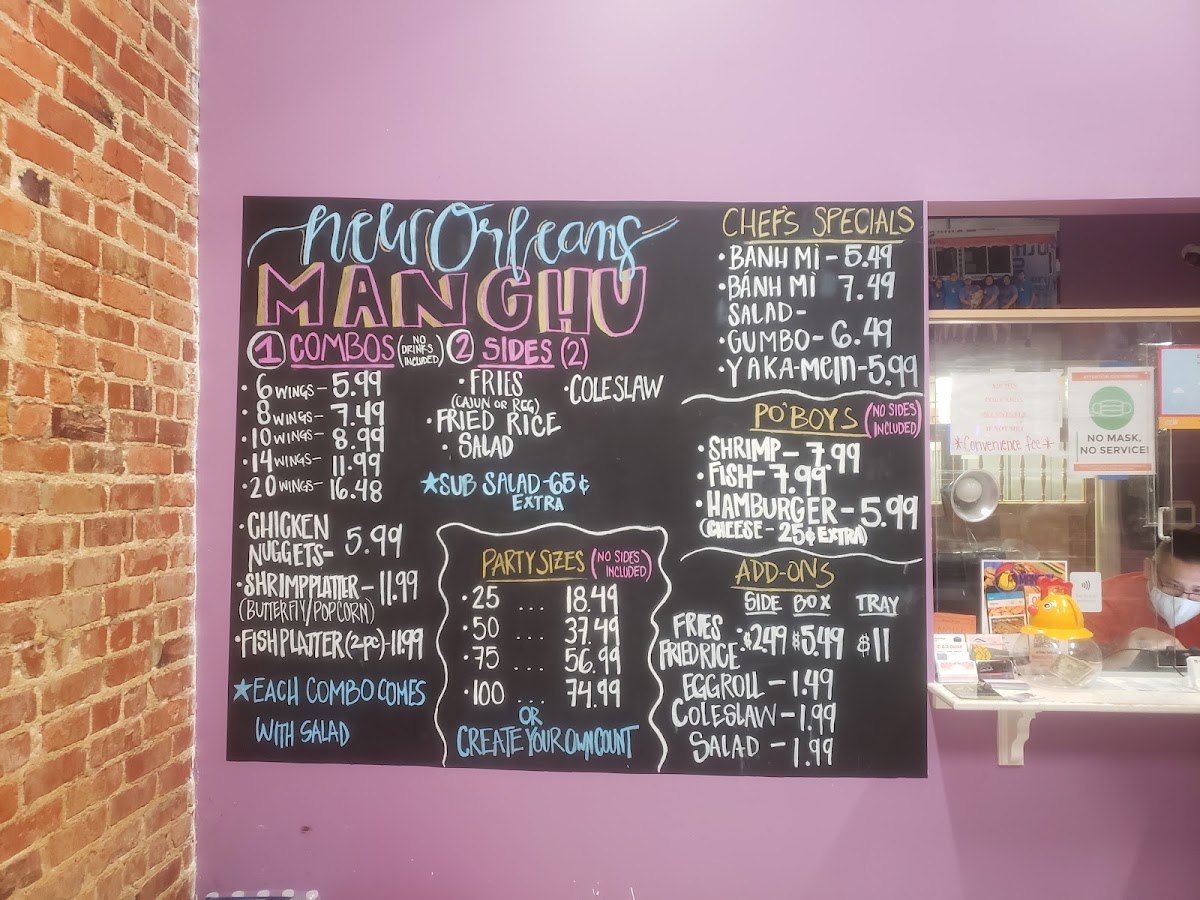 New Orleans
MANCHU
1 COMBOS (NO DRINKS INCLUDED)
• 6 WINGS - 5.99
• 8 WINGS - 7.49
• 10 WINGS - 8.99
• 14 WINGS - 11.99
• 20 WINGS - 16.48
• CHICKEN
NUGGETS - 5.99
• SHRIMP PLATTER - 11.99
(BUTTERFLY/POPCORN)
• FISH PLATTER (2pc) - 11.99
★ EACH COMBO COMES
WITH SALAD
2 SIDES (2)
• FRIES
(CAJUN OR REG)
• COLESLAW
• FRIED RICE
• SALAD
★ SUB SALAD - 65¢
EXTRA
PARTY SIZES (NO SIDES INCLUDED)
• 25 ... 18.49
• 50 ... 37.49
• 75 ... 56.99
• 100 ... 74.99
OR
CREATE YOUR OWN COUNT
CHEF'S SPECIALS
• BÁNH MÌ - 5.49
• BÁNH MÌ 7.49
SALAD -
• GUMBO - 6.49
• YAKA-Mein - 5.99
PO'BOYS (NO SIDES INCLUDED)
• SHRIMP - 7.99
• FISH - 7.99
• HAMBURGER - 5.99
(CHEESE - 25¢ EXTRA)
ADD-ONS
SIDE BOX TRAY
FRIES
FRIED RICE : $2.49 $5.49 $11
EGGROLL - 1.49
COLESLAW - 1.99
SALAD - 1.99
*Convenience fee*
NO MASK,
NO SERVICE!